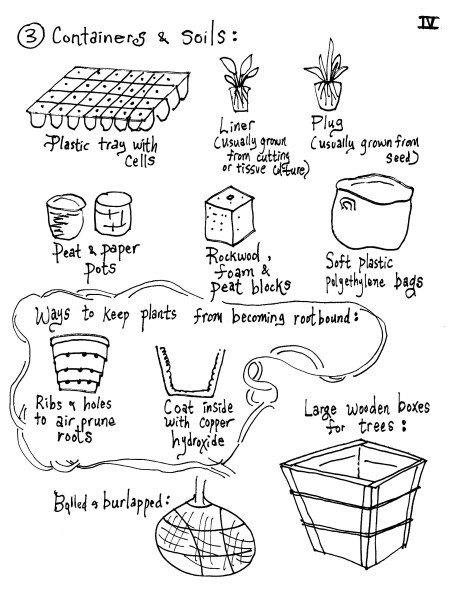 IV
③ Containers & Soils:
Plastic tray with
cells
Liner
(usually grown
from cutting
or tissue culture)
Plug
(usually grown from
seed)
Peat & paper
pots
Rockwool,
foam &
peat blocks
Soft plastic
polyethylene bags
Ways to keep plants from becoming rootbound:
Ribs & holes
to air prune
roots
Coat inside
with copper
hydroxide
Large wooden boxes
for trees:
Balled & burlapped: